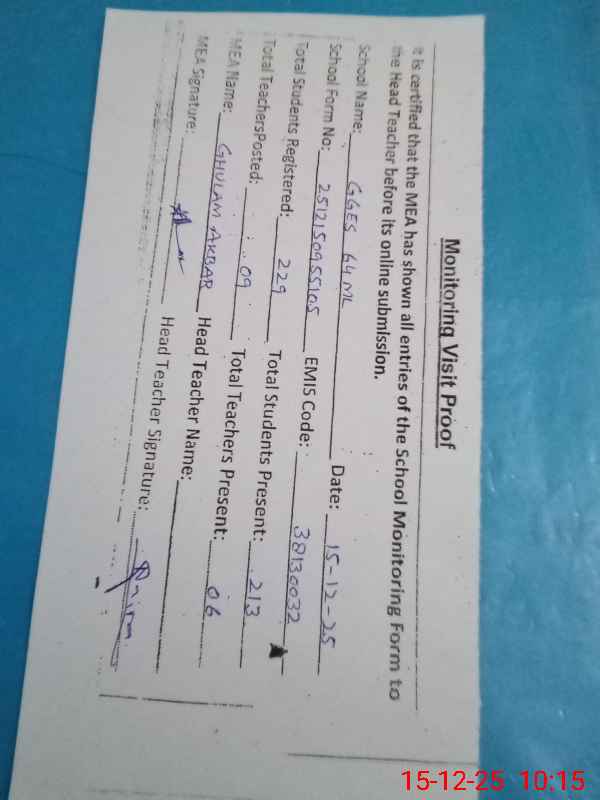 Monitoring Visit Proof
It is certified that the MEA has shown all entries of the School Monitoring Form to
the Head Teacher before its online submission.
School Name: GGES 64 ML Date: 15-12-25
School Form No: 2512150955105 EMIS Code: 38130032
Total Students Registered: 229 Total Students Present: 213
Total TeachersPosted: 09 Total Teachers Present: 06
MEA Name: GHULAM AKBAR Head Teacher Name:
MEA Signature: Head Teacher Signature:
15-12-25 10:15